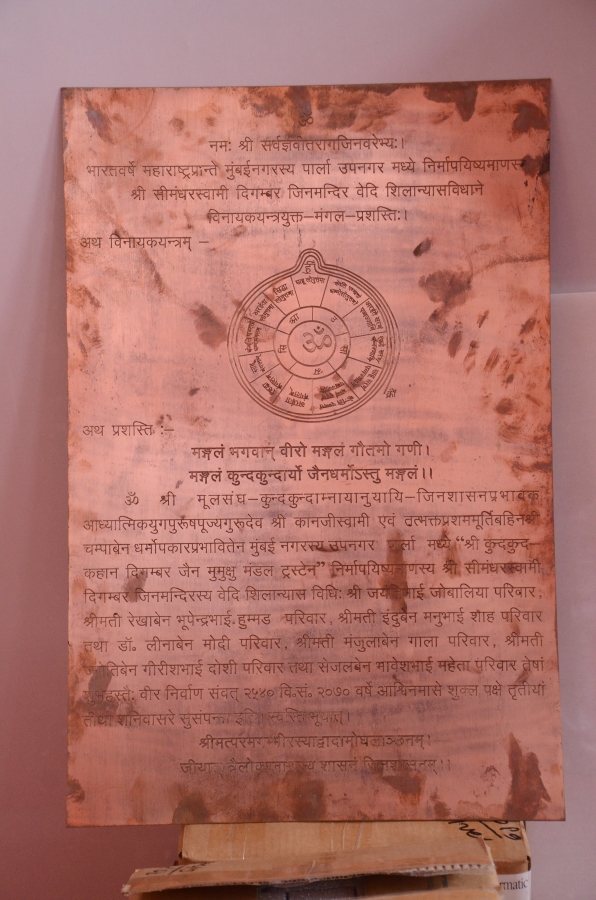 ॐ
नमः श्री सर्वज्ञवीतरागजिनवरेभ्यः।
भारतवर्षे महाराष्ट्रप्रान्ते मुंबईनगरस्य पार्ला उपनगर मध्ये निर्मापयिष्यमाणस्य
श्री सीमंधरस्वामी दिगम्बर जिनमन्दिर वेदि शिलान्यासविधाने
विनायकयन्त्रयुक्त–मंगल–प्रशस्तिः।
अथ विनायकयन्त्रम् –
ॐ
अथ प्रशस्ति :–
मङ्गलं भगवान् वीरो मङ्गलं गौतमो गणी।
मङ्गलं कुन्दकुन्दार्यो जैनधर्मोऽस्तु मङ्गलं।।
ॐ श्री मूलसंघ–कुन्दकुन्दाम्नायानुयायि–जिनशासनप्रभावक
आध्यात्मिकयुगपुरुषपूज्यगुरुदेव श्री कानजीस्वामी एवं तत्भक्तप्रशममूर्तिबहिनश्री
चम्पाबेन धर्मोपकारप्रभावितेन मुंबई नगरस्य उपनगर पार्ला मध्ये “श्री कुंदकुन्द–
कहान दिगम्बर जैन मुमुक्षु मंडल ट्रस्टेन” निर्मापयिष्यमाणस्य श्री सीमंधरस्वामी
दिगम्बर जिनमन्दिरस्य वेदि शिलान्यास विधिः श्री जयंतिभाई जोबालिया परिवार,
श्रीमती रेखाबेन भूपेन्द्रभाई हुम्मड परिवार, श्रीमती इंदुबेन मनुभाई शाह परिवार
तथा डॉ. लीनाबेन मोदी परिवार, श्रीमती मंजुलाबेन गाला परिवार, श्रीमती
ज्योतिबेन गीरीशभाई दोशी परिवार तथा सेजलबेन भावेशभाई महेता परिवार तेषां
शुभहस्ते: वीर निर्वाण संवत् २५४० वि.सं. २०७० वर्षे आश्विनमासे शुक्ल पक्षे तृतीयां
तीथौ शनिवासरे सुसंपन्ना
श्रीमत्परमगम्भीरस्याद्वादामोघलाञ्छनम्।
जीयात् त्रैलोक्यनाथस्य शासनं जिनशासनम्।।